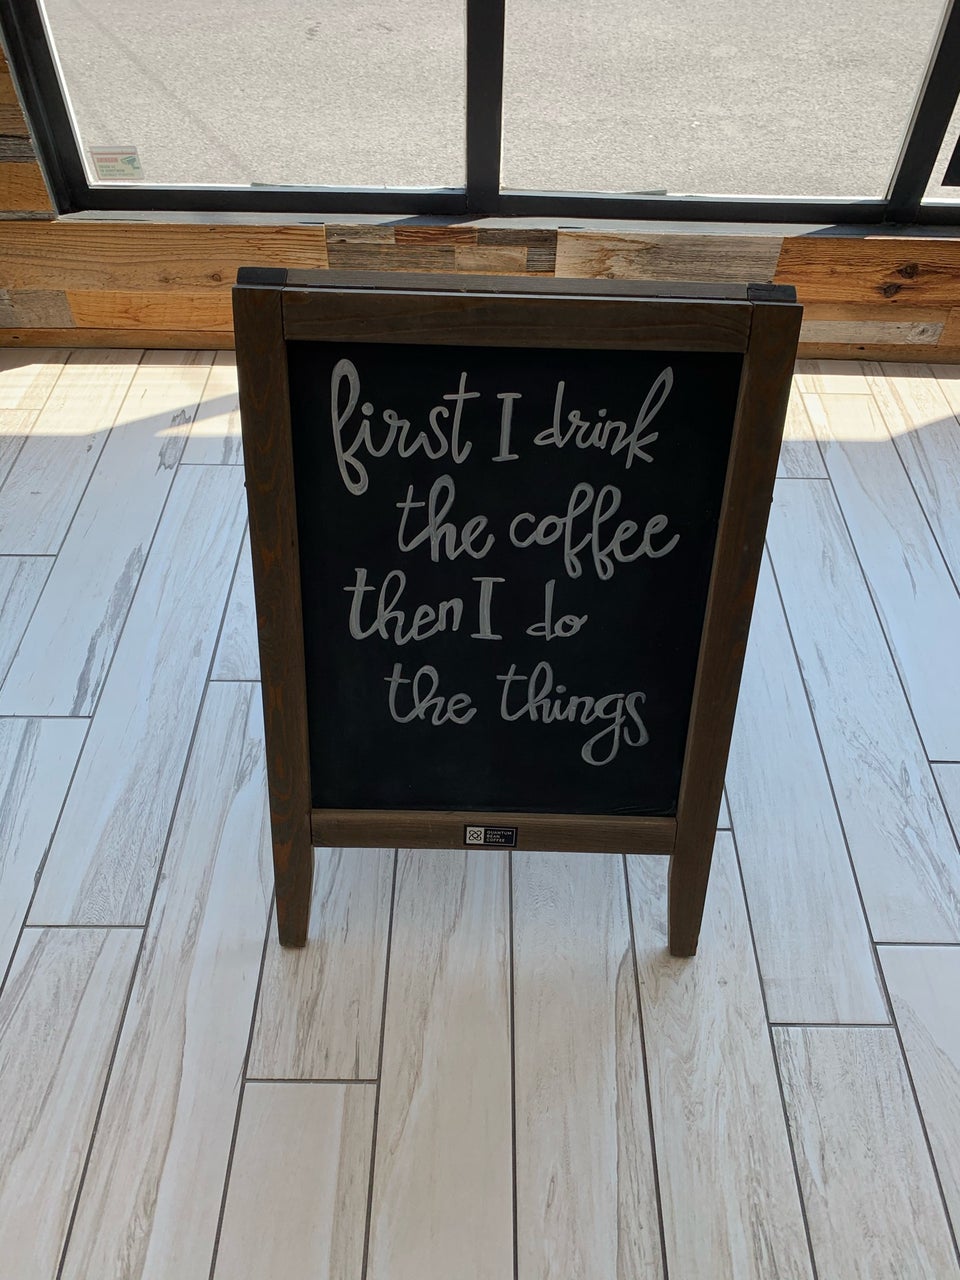 first I drink
the coffee
then I do
the things
QUANTUM
BEAN
COFFEE